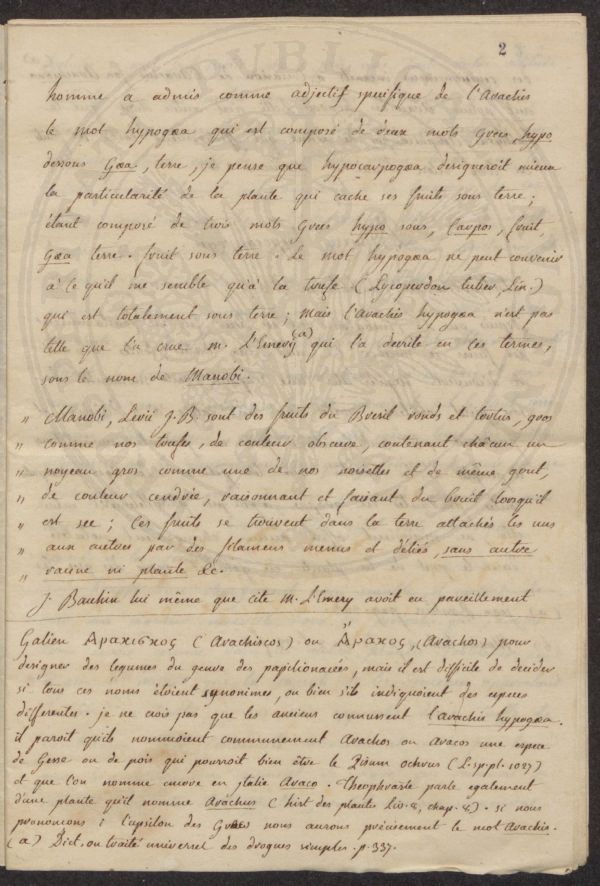 2
homme a admis comme adjectif specifique de l'Arachis
le mot hypogæa qui est composé de deux mots grecs, hypo
dessous Gæa, terre, je pense que hypocarpogæa designeroit mieux
la particularité de la plante qui cache ses fruits sous terre;
étant composé de trois mots grecs hypo sous, Carpos, fruit,
Gæa terre. fruit sous terre. Le mot hypogæa ne peut convenir
à ce qu'il me semble qu'à la trufe (Lycoperdon tuber, Lin.)
qui est totalement sous terre; mais l'arachis hypogæa n'est pas
telle que l'a crue m. L'Emery (a) qui l'a decrite en ces termes,
sous le nom de Manobi.
" Manobi, Levii J.B. sont des fruits du Bresil ronds et tortus, gros
" comme nos trufes, de couleur obscure, contenant châcun un
" noyeau gros comme une de nos noisettes et de même gout,
" de couleur cendrée, raisonnant et faisant du bruit lorsqu'il
" est sec; Ces fruits se trouvent dans la terre attachés les uns
" aux autres par des filamens menus et déliés, sans autre
" racine ni plante &c.
J. Bauhin lui même que cite m. L'Emery avoit eu pareillement
Galien Αρακισκος (Arachiscos) ou Ἄρακος, (Arachos) pour
designer des legumes du genre des papilionacées, mais il est difficile de decider
si tous ces noms étoient synonimes, ou bien s'ils indiquoient des especes
differentes. je ne crois pas que les anciens connussent l'arachis hypogæa.
il paroit qu'ils nommoient communement Arachos ou Aracos une espece
de Gesse ou de pois qui pourroit bien être le Pisum ochrus (L. sp. pl. 1027)
et que l'on nomme encore en italie Araco. Theophraste parle egalement
d'une plante qu'il nomme Arachus (hist des plantes Liv. 8, chap. 8.). si nous
prononçons i l'upsilon des Grecs nous aurons précisement le mot Arachis.
(a) Dict. ou traité universel des drogues simples. p. 337.